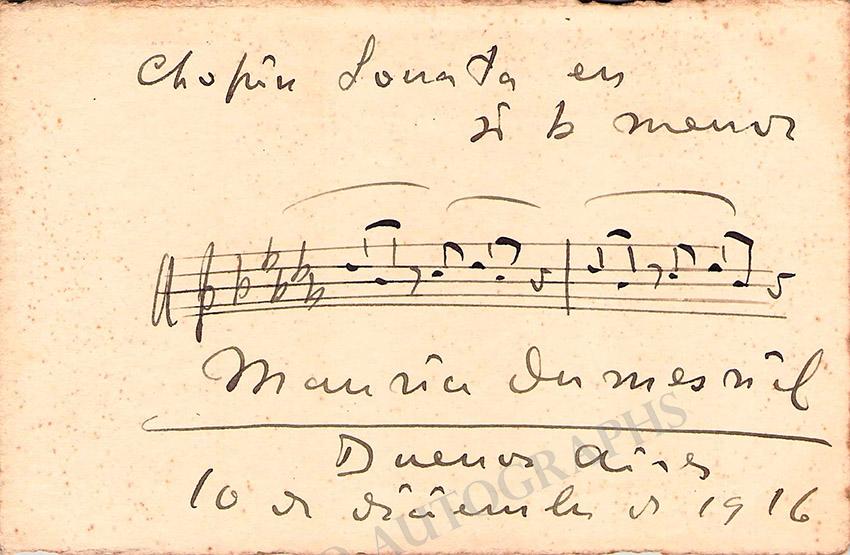 Chopin Sonata en
si b menor
Maurice Dumesnil
Buenos Aires
10 de diciembre de 1916
AUTOGRAPHS